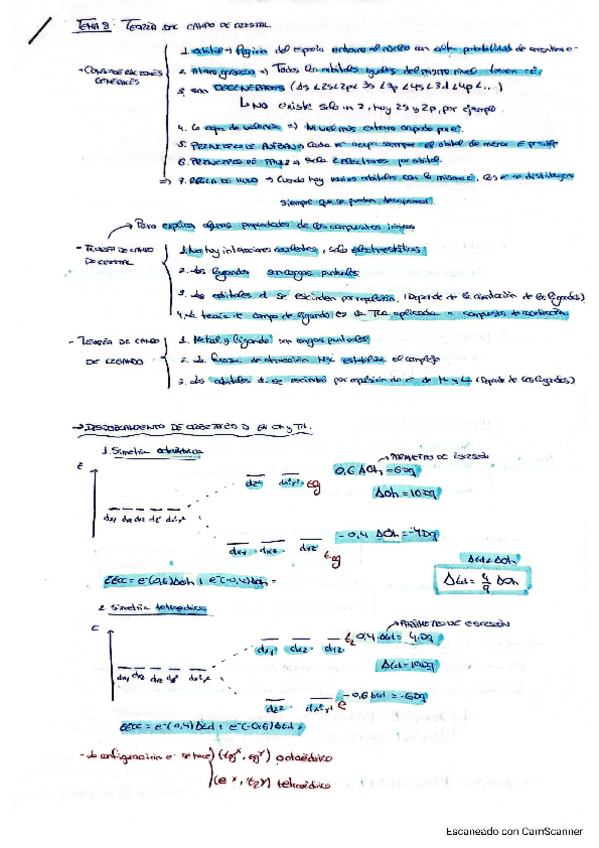 TEMA 8: TEORÍA DEL CAMPO DE CRISTAL
- CONSIDERACIONES GENERALES
1. Orbital → Región del espacio entorno al núcleo con alta probabilidad de encontrar e-
2. Átomo gaseoso → Todos los orbitales iguales del mismo nivel tienen
3. son DEGENERADOS (1s<2s<2p<3s<3p<4s<3d<4p<...)
↳ NO existe solo n 2, hay 2s y 2p, por ejemplo
4. La capa de valencia => Nivel más externo ocupado por e-.
5. PRINCIPIO DE AUFBAU → Cada e- ocupa siempre el orbital de menor E posible
6. PRINCIPIO DE PAULI → Solo 2 electrones por orbital.
=> 7. REGLA DE HUND → Cuando hay varios orbitales con la misma E, los e- se distribuyen
siempre que se puedan
→ Para explicar algunas propiedades de los compuestos iónicos
- TEORÍA DE CAMPO DE CRISTAL
1. No hay interacciones covalentes, solo electrostáticas
2. Los ligandos son cargas puntuales
3. Los orbitales d se escinden por repulsión (Depende de la orientación de los ligandos)
4. La teoría de campo de ligando es la TCC aplicada a compuestos de coordinación
- TEORÍA DE CAMPO DE LIGANDO
1. Metal y ligando son cargas puntuales
2. La fuerza de atracción M-L estabiliza el complejo
3. Los orbitales d se escinden por repulsión de e- de M y L (Depende de los ligandos)
→ DESDOBLAMIENTO DE ORBITALES D EN Oh y Td.
1. Simetría octaédrica
→ PARÁMETRO DE ESCISIÓN
E
dz² dx²y² eg 0,6 ΔOh = 6Dq
ΔOh = 10Dq
dxy dxz dyz dz² dx²y²
dxy dxz dyz t2g -0,4 ΔOh = -4Dq
Δtd < ΔOh
EECC = e-(0,6)ΔOh + e-(-0,4)ΔOh =
Δtd = 4/9 ΔOh
2. Simetría tetraédrica
→ PARÁMETRO DE ESCISIÓN
E
dxy dxz dyz t2 0,4 Δtd = 4Dq
Δtd = 10Dq
dxy dxz dyz dz² dx²y²
dz² dx²y² e -0,6 Δtd = -6Dq
EECC = e-(0,4)Δtd + e-(-0,6)Δtd =
- La configuración e- se hace (t2g^x, eg^y) octaédrico
(e^x, t2^y) tetraédrico
Escaneado con CamScanner